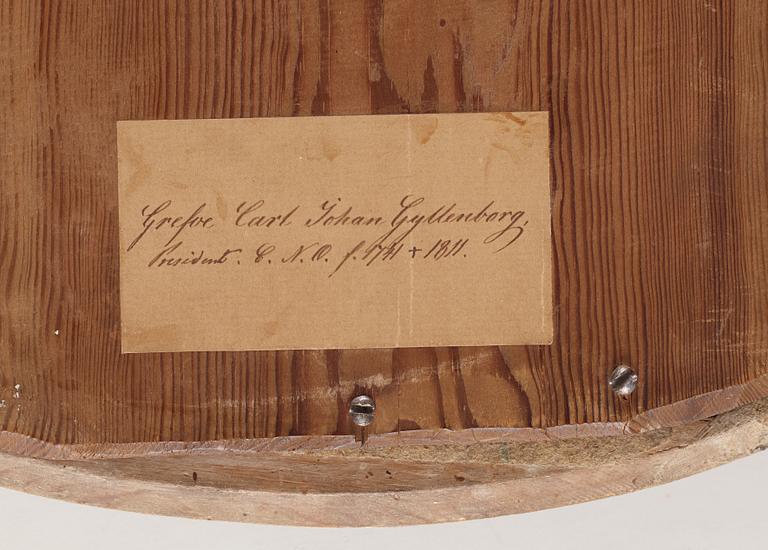 Grefve Carl Johan Gyllenborg,
President. C. N. O. f. 1741 + 1811.